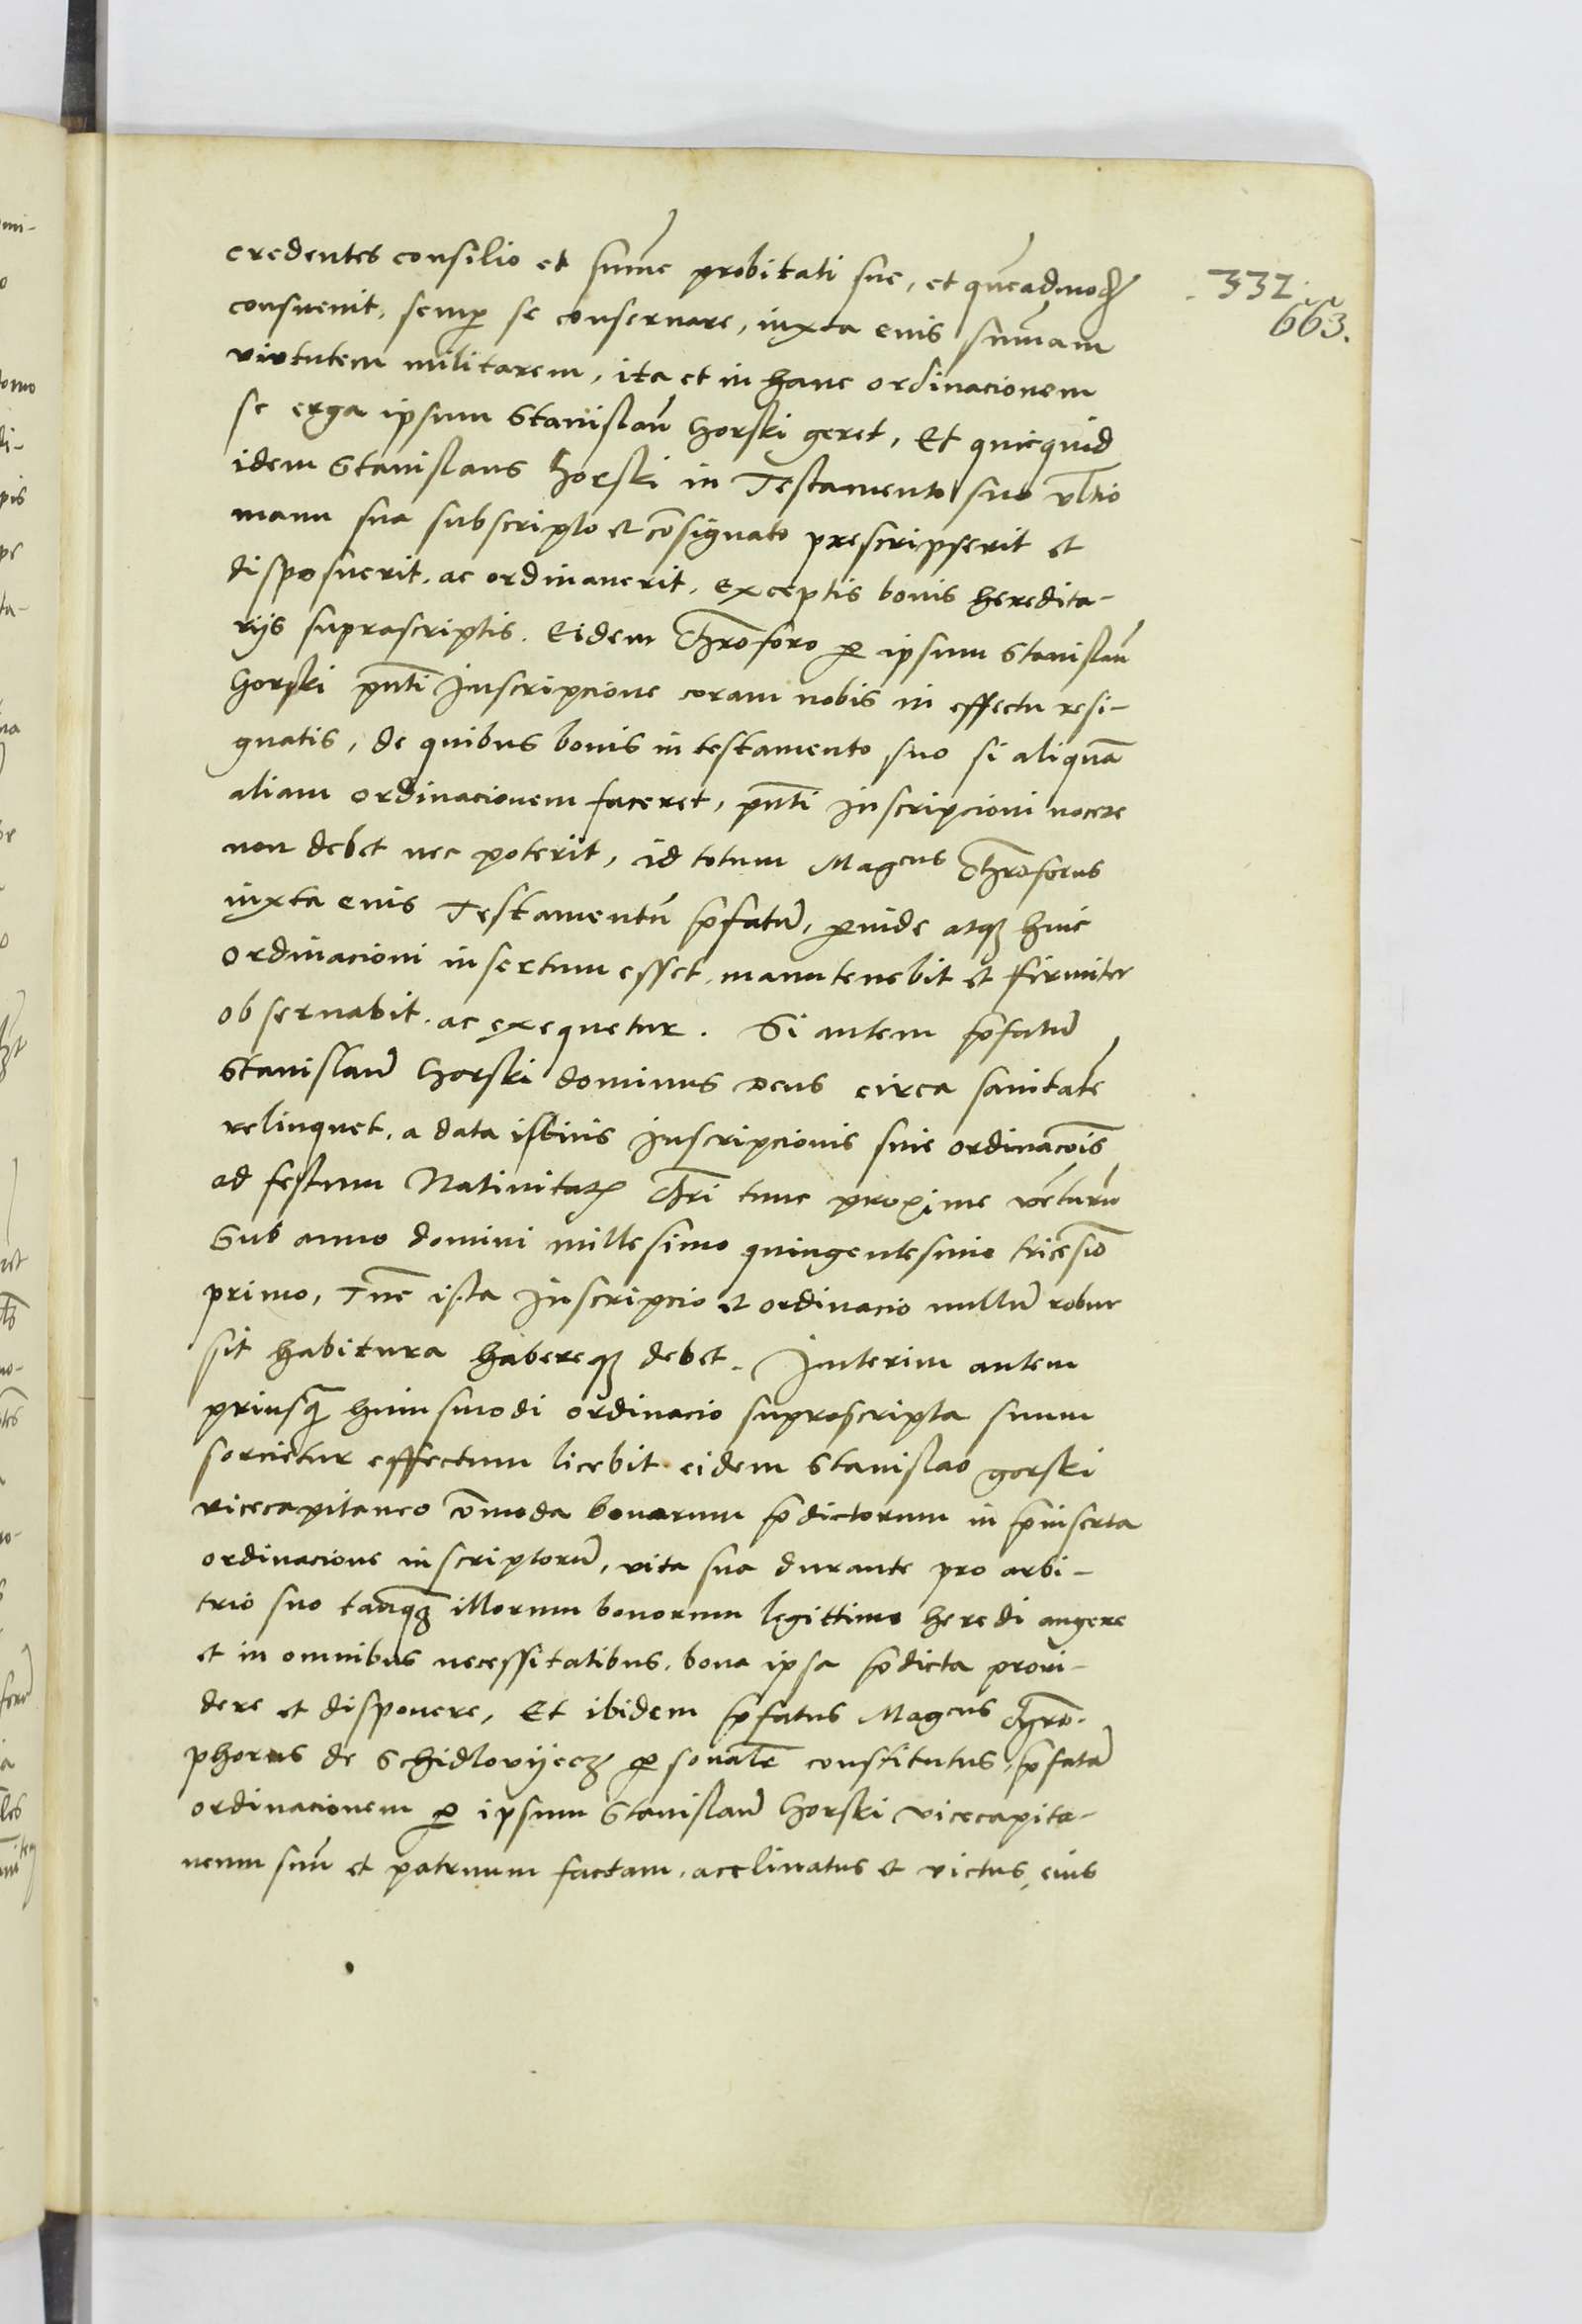 credentes consilio et sum̄e probitati sue, et queādmod̄
332.
663.
consuevit, semp̱ se conservare, iuxta eius sum̄am
virtutem militarem, ita et in hanc ordinacionem
se erga ipsum Stanislaū Gorski geret, Et quicquid
idem Stanislaus Gorski in Testamento suo vltīo
manu sua subscripto et cōsignato prescripserit et
disposuerit, ac ordinauerit, exceptis bonis heredita-
rijs suprascriptis. Eidem Chrōforo ꝑ ipsum Stanislaū
Gorski pn̄ti Inscripcione coram nobis in effectu resi-
gnatis, de quibus bonis in testamento suo si aliquā
aliam ordinacionem faceret, pn̄ti inscripcioni nocere
non debet nec poterit, id totum Mag͞cus Chrōforus
iuxta eius Testamentū p̄fatū, ꝑinde atqȝ huic
ordinacioni insertum esset, manutenebit et firmiter
observabit, ac exequetur. Si autem p̄fatū
Stanislaū Gorski dominus deus circa sanitatē
relinquet, a data istius Inscripcionis siue ordinacōis
ad festum Natiuitatꝭ Chrī tunc proxime vēturū
Sub anno domini millesimo quingentesimo tricēsīo
primo, Tūc ista Inscripcio et ordinacio nullū robur
sit habitura habereqȝ debet. Interim autem
priusq̄ huiusmodi ordinacio suprascripta suum
sorcietur effectum licebit eidem Stanislao gorski
vicecapitaneo cōmoda bonorum p̄dictorum in p̄inserta
ordinacione inscriptorū, vita sua durante pro arbi-
trio suo tanq̄ȝ illorum bonorum legittimo heredi augere
et in omnibus necessitatibus, bona ipsa p̄dicta provi-
dere et disponere, Et ibidem p̄fatus Mag͞cus Chrō-
phorus de Schidlovijecȝ ꝑsonalr̄ constitutus, p̄fatā
ordinacionem ꝑ ipsum Stanislaū Gorski vicecapita-
neum suū et patruum factam, acclinatus et victus, eius